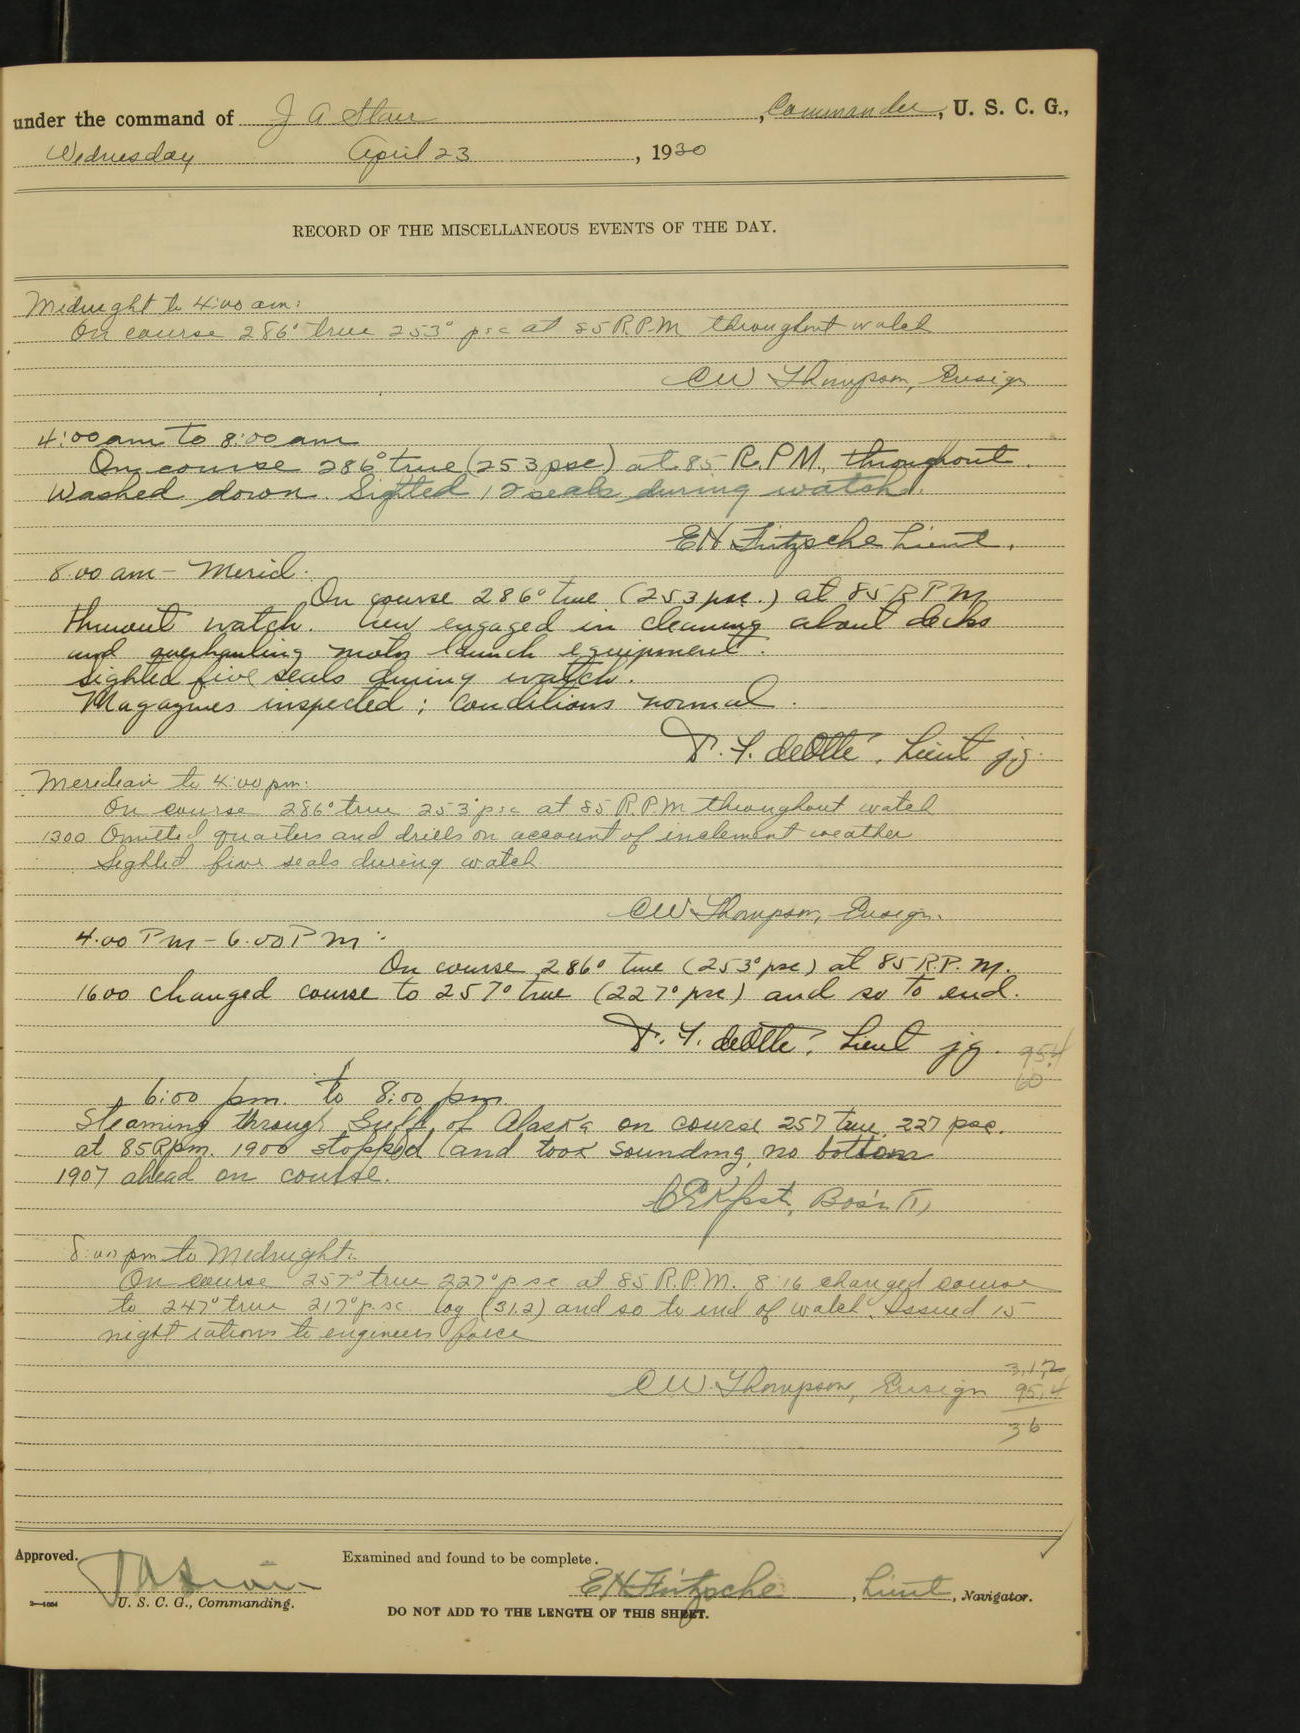 under the command of J A Starr, Commander, U. S. C. G.,
Wednesday April 23, 1930
RECORD OF THE MISCELLANEOUS EVENTS OF THE DAY.
Midnight to 4:00 am:
On course 286° true 253° psc at 85 R.P.M. throughout watch
CW Thompson, Ensign
4:00 am to 8:00 am
On course 286° true (253 psc) at 85 R.P.M. throughout.
Washed down. Sighted 12 seals during watch.
EH Fritzsche Lieut.
8.00 am - Merid.
On course 286° true (253 psc.) at 85 R P M
thruout watch. Crew engaged in cleaning about decks
and overhauling motor launch equipment.
sighted five seals during watch.
Magazines inspected; conditions normal.
deOtte, Lieut jg.
Meredian to 4:00 pm:
On course 286° true 253° psc at 85 R.P.M throughout watch
1300 Omitted quarters and drills on account of inclement weather
Sighted five seals during watch
CW Thompson, Ensign.
4.00 Pm - 6.00 P m:
On course 286° true (253° psc) at 85 R.P.M.
1600 changed course to 257° true (227° psc) and so to end.
deOtte, Lieut jg.
95.4
60
6:00 pm. to 8:00 pm.
Steaming through Gulf of Alaska on course 257 true, 227 psc.
at 85 Rpm. 1900 stopped and took sounding, no bottom
1907 ahead on course.
Bos'n (T)
8:00 pm to Midnight:
On course 257° true 227° psc at 85 R.P.M. 8:16 changed course
to 247° true 217° p.sc. log (31.2) and so to end of watch. Issued 15
night rations to engineers force
CW Thompson, Ensign
31.2
95.4
36
Approved.
Examined and found to be complete.
EH Fritzsche, Lieut, Navigator.
U. S. C. G., Commanding.
2—1664
DO NOT ADD TO THE LENGTH OF THIS SHEET.